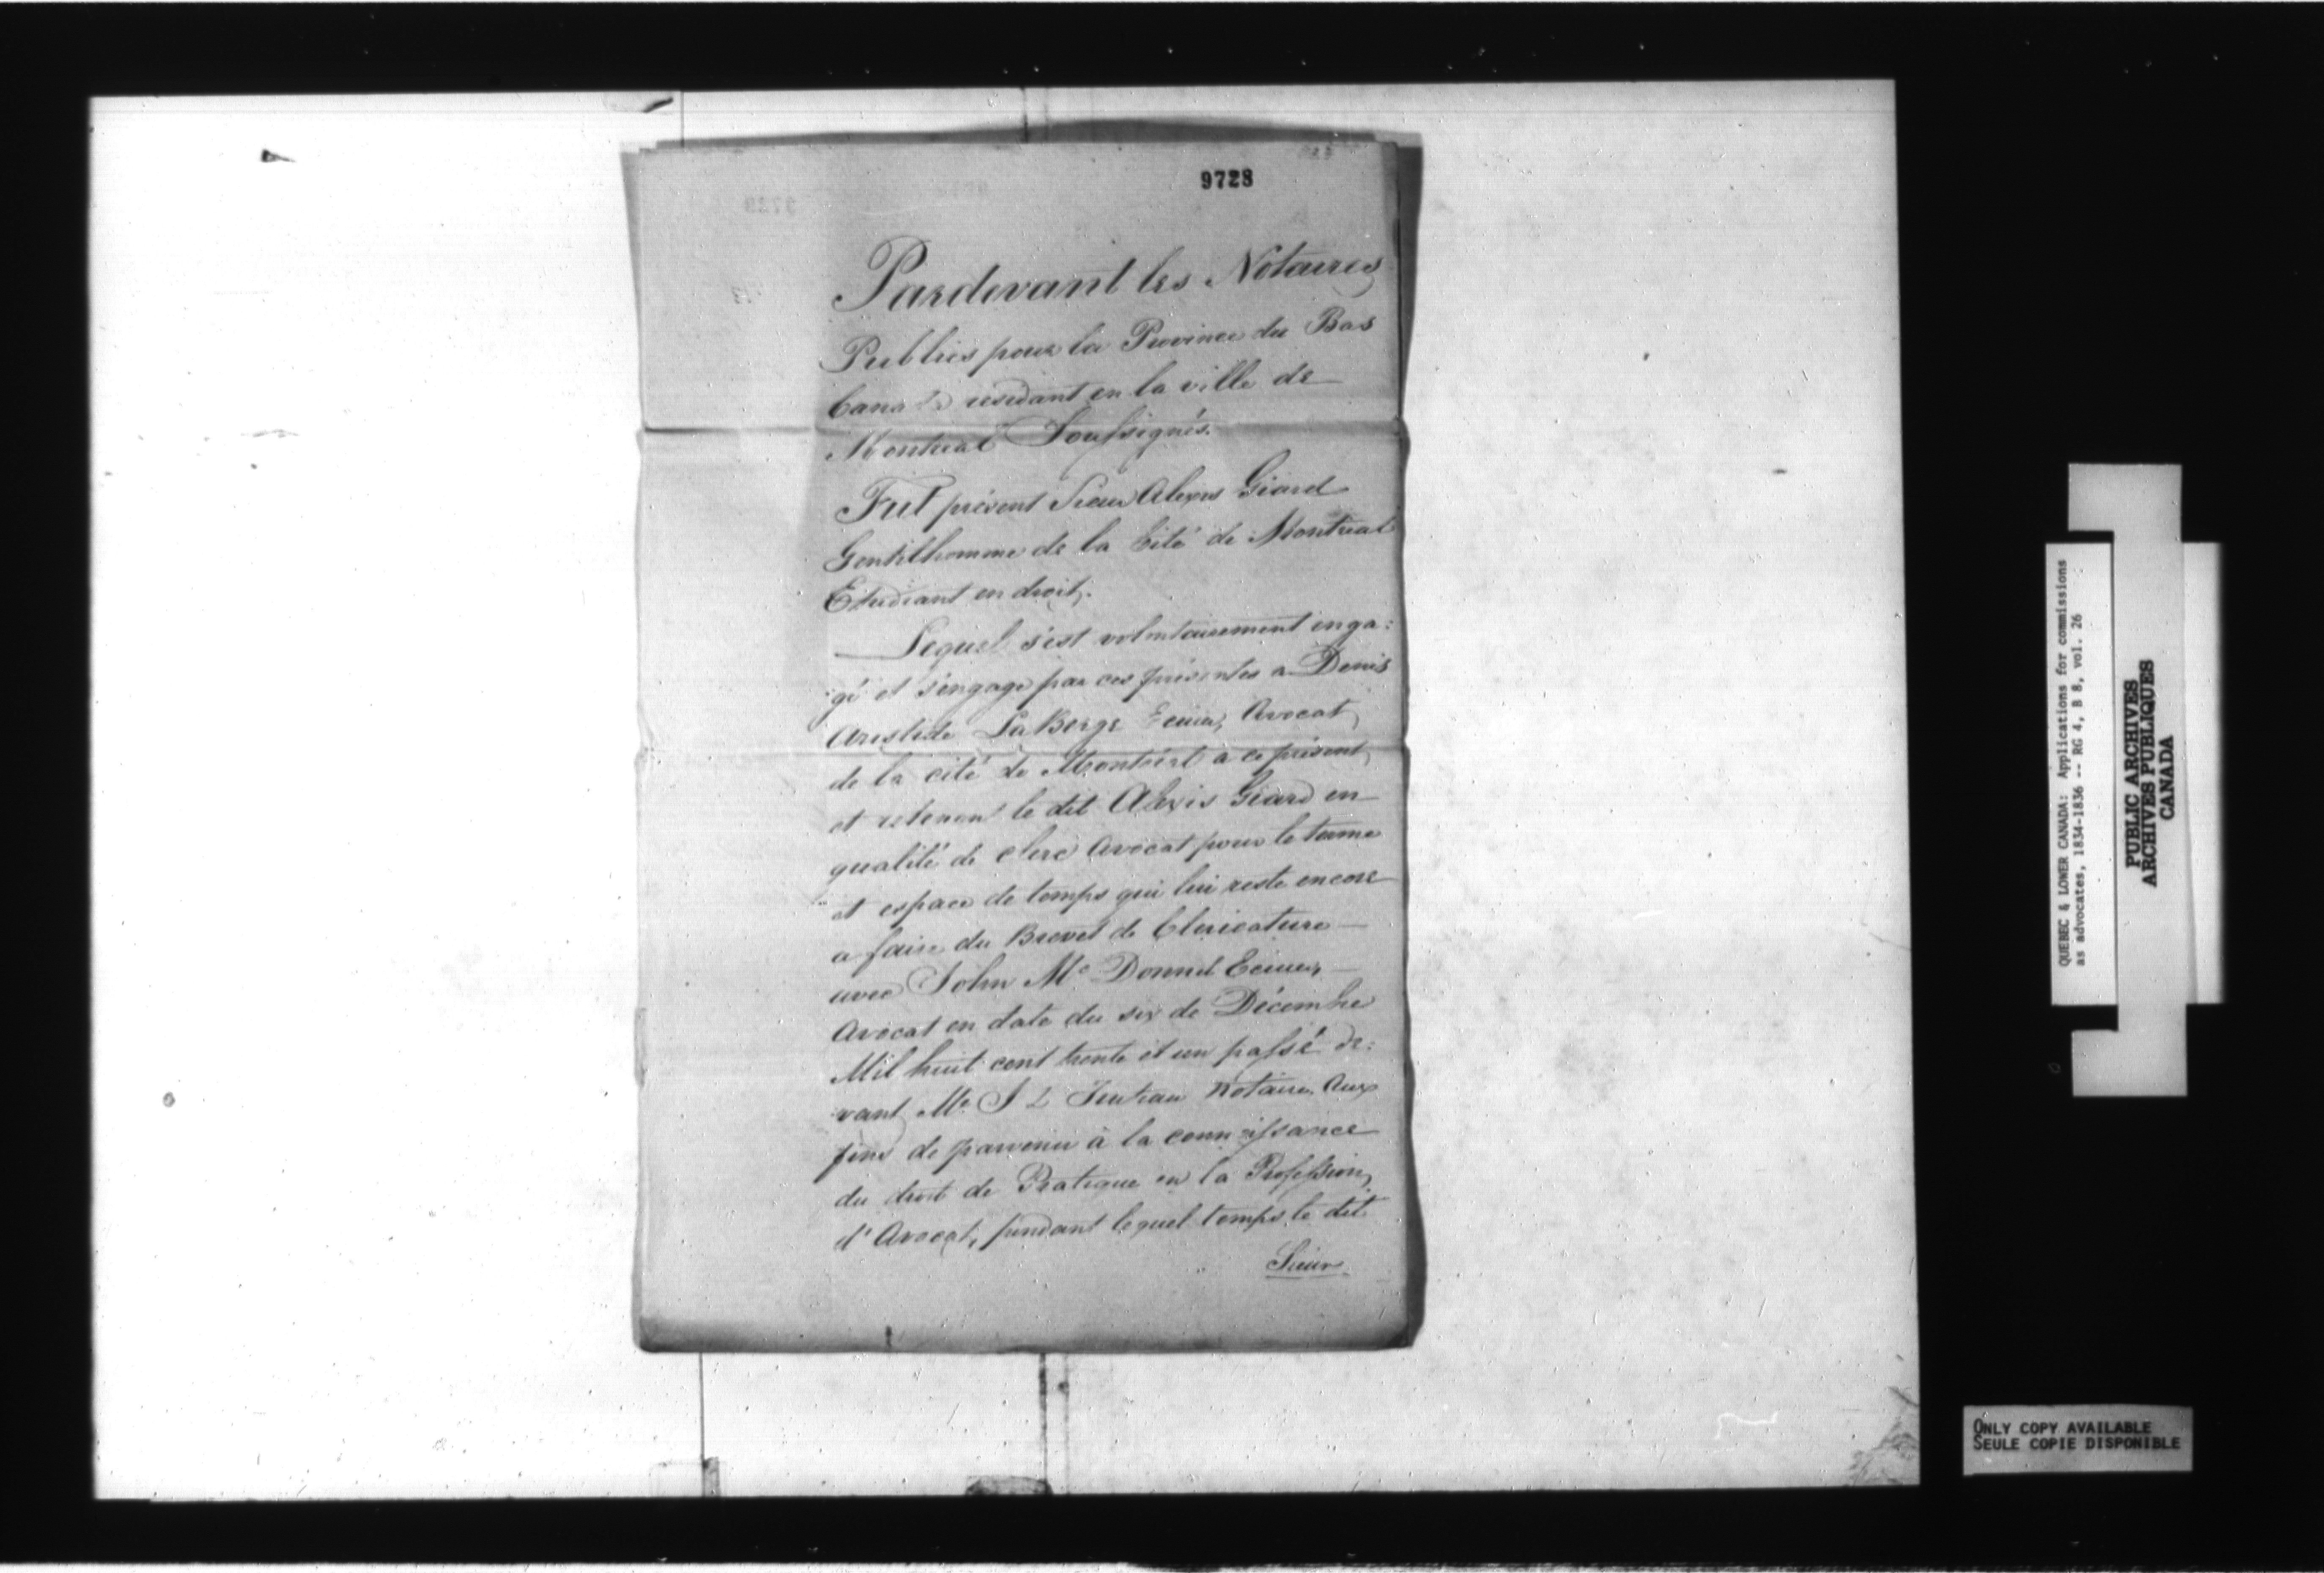 9728
Pardevant les Notaires
Publics pour la Province du Bas
Canada residant en la ville de
Montreal Soussignés.
Fut présent Sieur Alexis Giard
Gentilhomme de la Cité de Montreal
Etudiant en droit.
Lequel s'est volontairement enga:
gé et s'engage par ces présentes a Denis
Aristide LaBerge Ecuier, Avocat,
de la cité de Montréal a ce présent,
et retenant le dit Alexis Giard en
qualité de clerc Avocat pour le terme
et espace de temps qui lui reste encore
a faire du Brevet de Clericature
avec John Mc Donnel Ecuier,
Avocat en date du six de Décembre
Mil huit cent trente et un passé de:
vant Me. J L Notaire, Aux
fins de parvenir à la connaissance
du droit de Pratique en la Profession
d'Avocat, pendant lequel temps le dit
Sieur
QUEBEC & LOWER CANADA: Applications for commissions
as advocates, 1834-1836 -- RG 4, B 8, vol. 26
PUBLIC ARCHIVES
ARCHIVES PUBLIQUES
CANADA
ONLY COPY AVAILABLE
SEULE COPIE DISPONIBLE